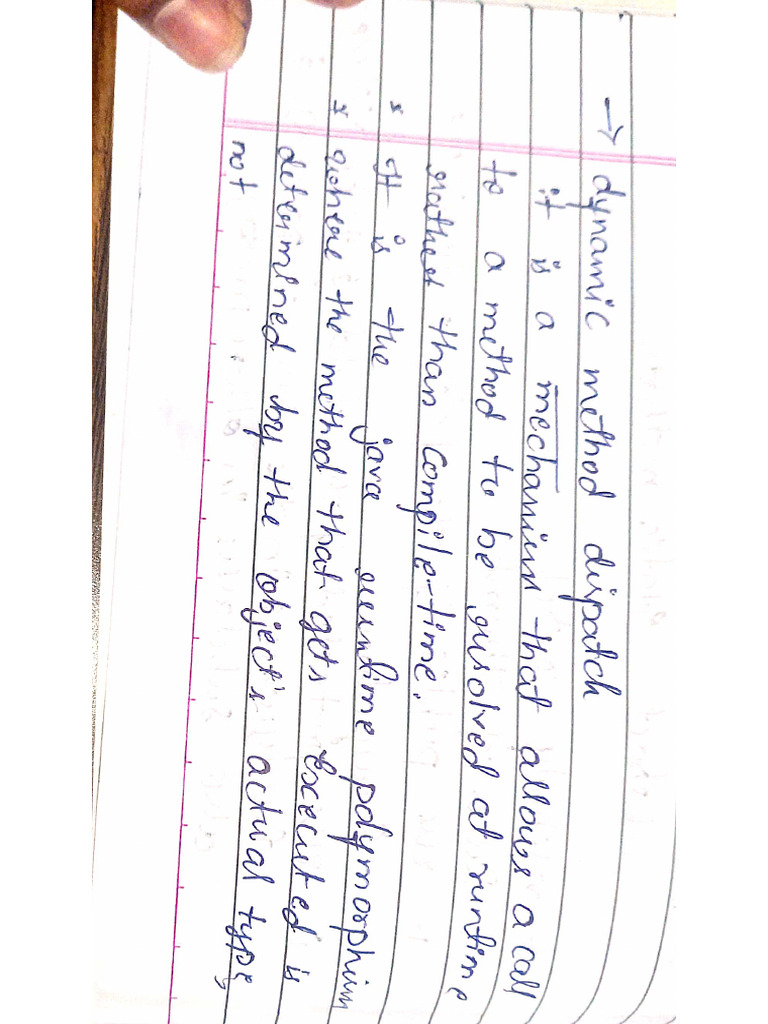 → dynamic method dispatch
it is a mechanism that allows a call
to a method to be resolved at runtime
rather than compile-time.
* It is the java runtime polymorphism
* where the method that gets Excecuted is
determined by the object's actual type,
not